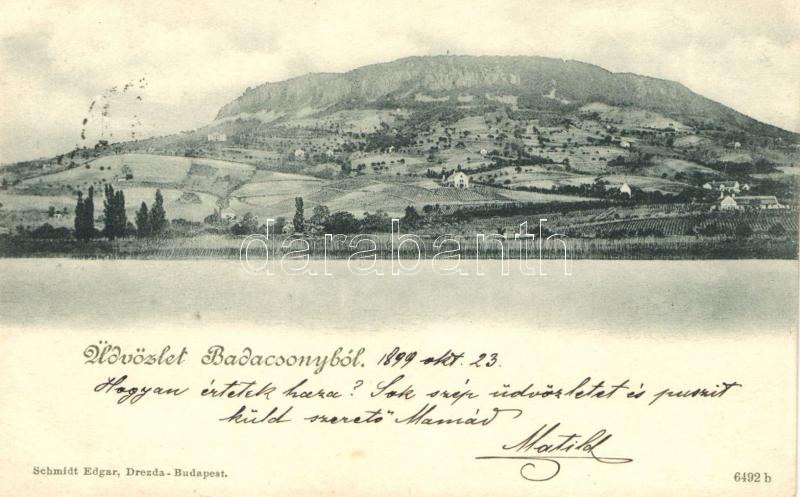 darabanth
Üdvözlet Badacsonyból. 1899 okt. 23.
Hogyan értetek haza? Sok szép üdvözletet és puszit
küld szerető Mamád
Matild
Schmidt Edgar, Drezda-Budapest.
6492 b